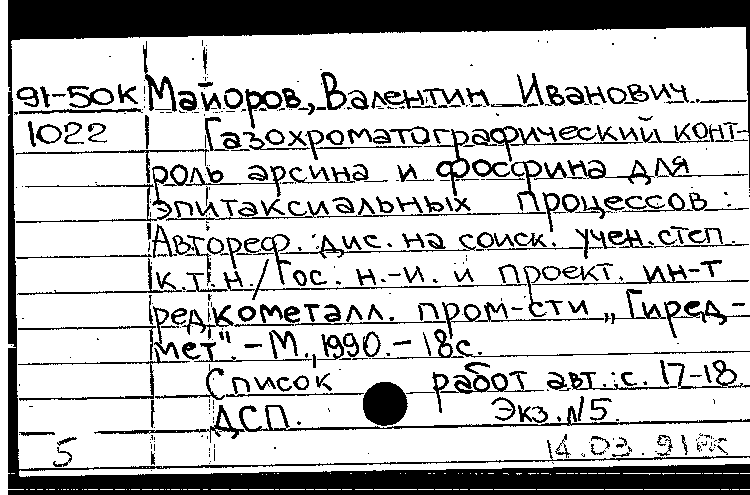 91-50К Майоров, Валентин Иванович.
1022 Газохроматографический конт-
роль арсина и фосфина для
эпитаксиальных процессов :
Автореф. дис. на соиск. учен. степ.
к.т.н./Гос. н.-и. и проект. ин-т
редкометалл. пром-сти „Гиред-
мет". – М., 1990. – 18с.
Список работ авт.: с. 17-18.
ДСП. Экз. №5.
5 14.03.91